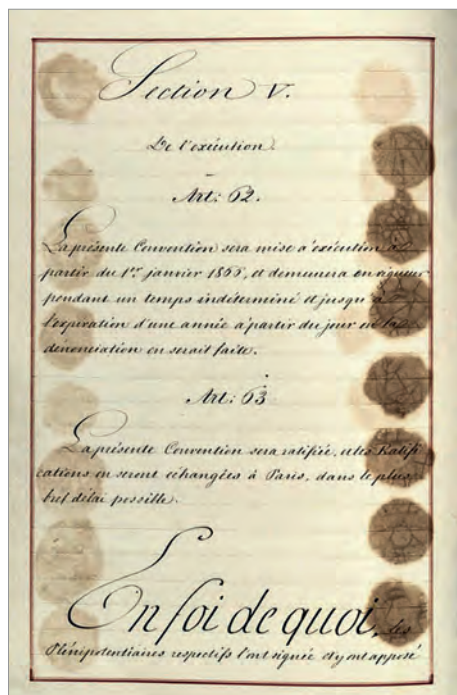 Section V.
De l'exécution.
Art: 62.
La présente Convention sera mise à exécution à
partir du 1er janvier 1866, et demeurera en vigueur
pendant un temps indéterminé et jusqu'à
l'expiration d'une année à partir du jour où la
dénonciation en serait faite.
Art: 63
La présente Convention sera ratifiée, et les Ratifi
cations en seront échangées à Paris, dans le plus
bref délai possible.
En foi de quoi, les
Plénipotentiaires respectifs l'ont signée et y ont apposé